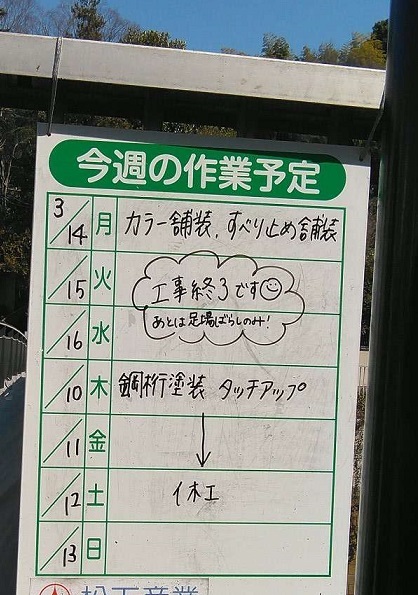 今週の作業予定
3/14 月 カラー舗装、すべり止め舗装
/15 火 工事終了です☺
/16 水 あとは足場ばらしのみ!
/10 木 鋼桁塗装 タッチアップ
/11 金 ↓
/12 土 休工
/13 日
松下産業